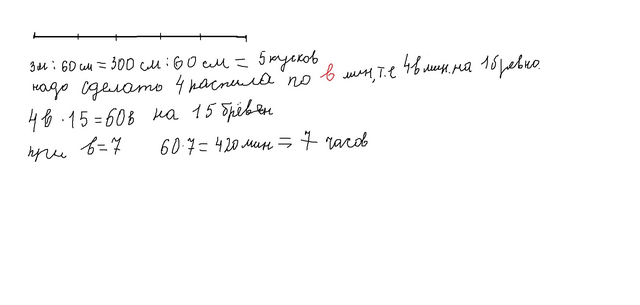 3м : 60 см = 300 см : 60 см = 5 кусков
надо сделать 4 распила по в мин, т.е 4в мин. на 1 бревно.
4в · 15 = 60в на 15 брёвен
при в=7 60·7 = 420 мин = 7 часов